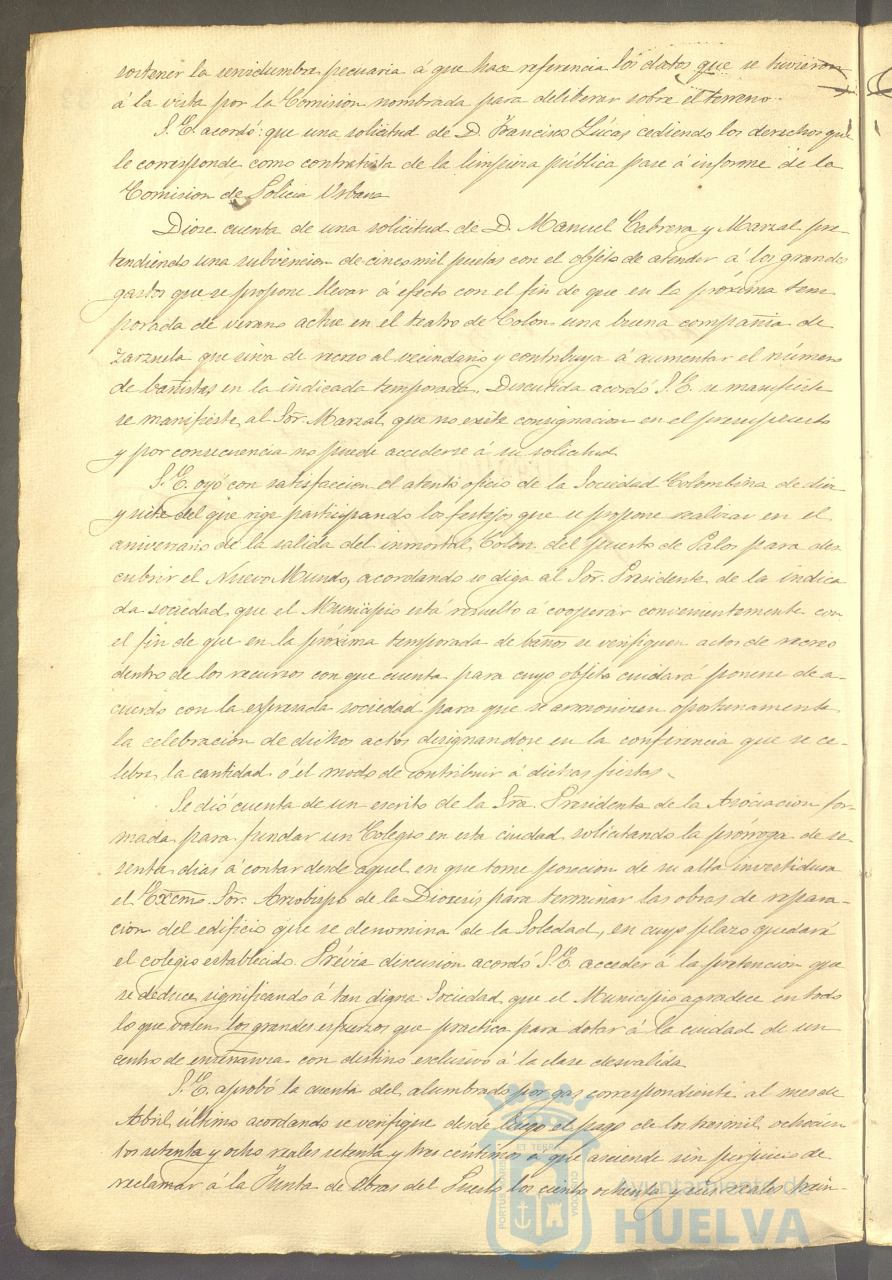 sostener la servidumbre pecuaria á que hace referencia los datos que se tuvieron
á la vista por la Comision nombrada para deliberar sobre el terreno.
S. E. acordó: que una solicitud de D. Francisco Lúcas cediendo los derechos que
le corresponde como contratista de la limpieza pública pase á informe de la
Comision de Policia Urbana
Diose cuenta de una solicitud de D. Manuel Cabrera y Marzal pre-
tendiendo una subvencion de cinco mil pesetas con el objeto de atender á los grandes
gastos que se propone llevar á efecto con el fin de que en la próxima tem
porada de verano actue en el teatro de Colon una buena compañia de
zarzuela que sirva de recreo al vecindario y contribuya á aumentar el número
de bañistas en la indicada temporada. Discutida acordó S. E. se manifieste
se manifieste al Sor. Marzal que no existe consignacion en el presupuesto
y por consecuencia no puede accederse á su solicitud
S. E. oyó con satisfaccion el atento oficio de la Sociedad Colombina de diez
y siete del que rige participando los festejos que se propone realizar en el
aniversario de la salida del inmortal Colon del puerto de Palos para des
cubrir el Nuevo Mundo, acordando se diga al Sor. Presidente de la indica
da sociedad que el Municipio está resuelto á cooperar convenientemente con
el fin de que en la próxima temporada de baños se verifiquen actos de recreo
dentro de los recursos con que cuenta para cuyo objeto cuidará ponerse de a-
cuerdo con la expresada sociedad para que se armonicen oportunamente
la celebracion de dichos actos designandose en la conferencia que se ce-
lebre la cantidad ó el modo de contribuir á dichas fiestas.
Se dió cuenta de un escrito de la Sra. Presidenta de la Asociacion for-
mada para fundar un Colegio en esta ciudad solicitando la prórroga de se
senta dias á contar desde aquel en que tome posecion de su alta investidura
el Excmo. Sor. Arzobispo de la Diocesis para terminar las obras de repara-
cion del edificio que se denomina de la Soledad, en cuyo plazo quedará
el colegio establecido. Prévia discusion acordó S. E. acceder á la pretencion que
se deduce significando á tan digna Sociedad que el Municipio agradece en todo
lo que valen los grandes esfuerzos que practica para dotar á la ciudad de un
centro de enseñanza con destino exclusivo á la clase desvalida
S. E. aprobó la cuenta del alumbrado por gas correspondiente al mes de
Abril último acordando se verifique desde luego el pago de los tresmil ochocien
tos setenta y ocho reales setenta y tres céntimos a que asciende sin perjuicio de
reclamar á la Junta de Obras del Puerto los ciento ochenta y seis reales trein-
Ayuntamiento de
HUELVA